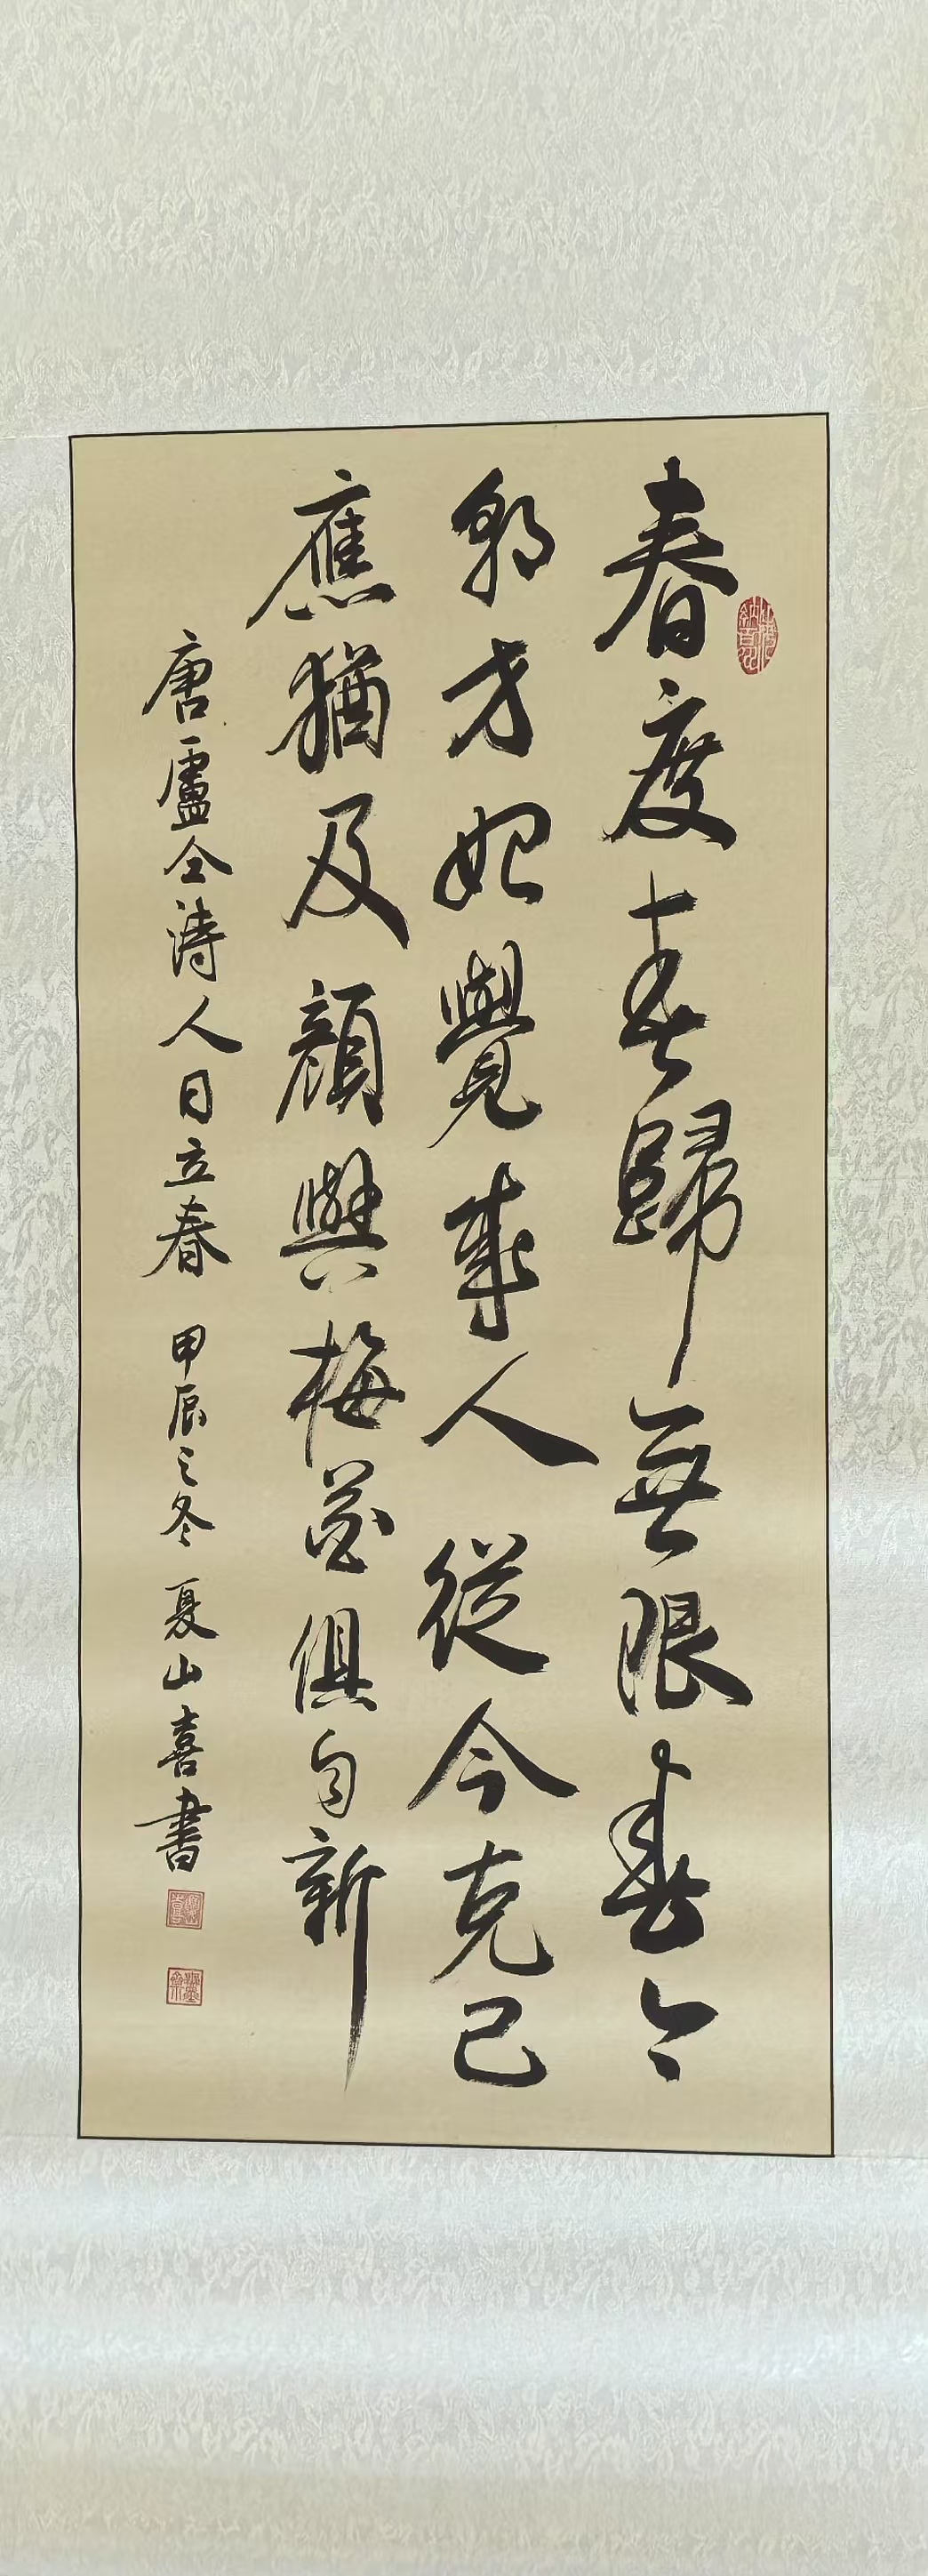 春度春歸無限春今
朝方始覺成人從今克己
應猶及顏與梅花俱自新
唐盧仝詩人日立春 甲辰之冬 夏山喜書